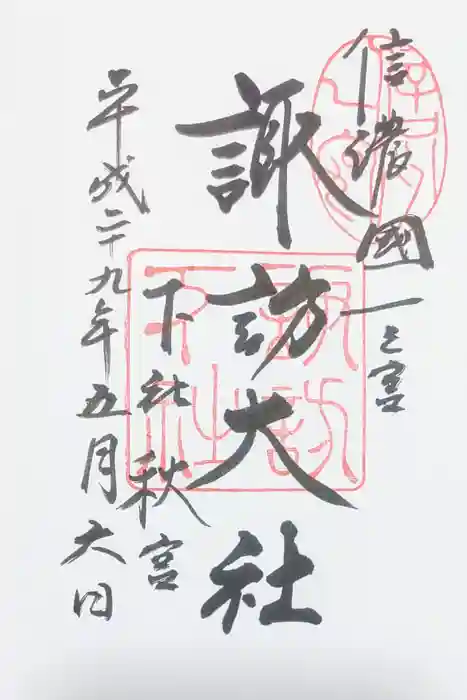 信濃國一之宮
諏訪大社
下社秋宮
平成二十九年五月六日
諏訪
下社